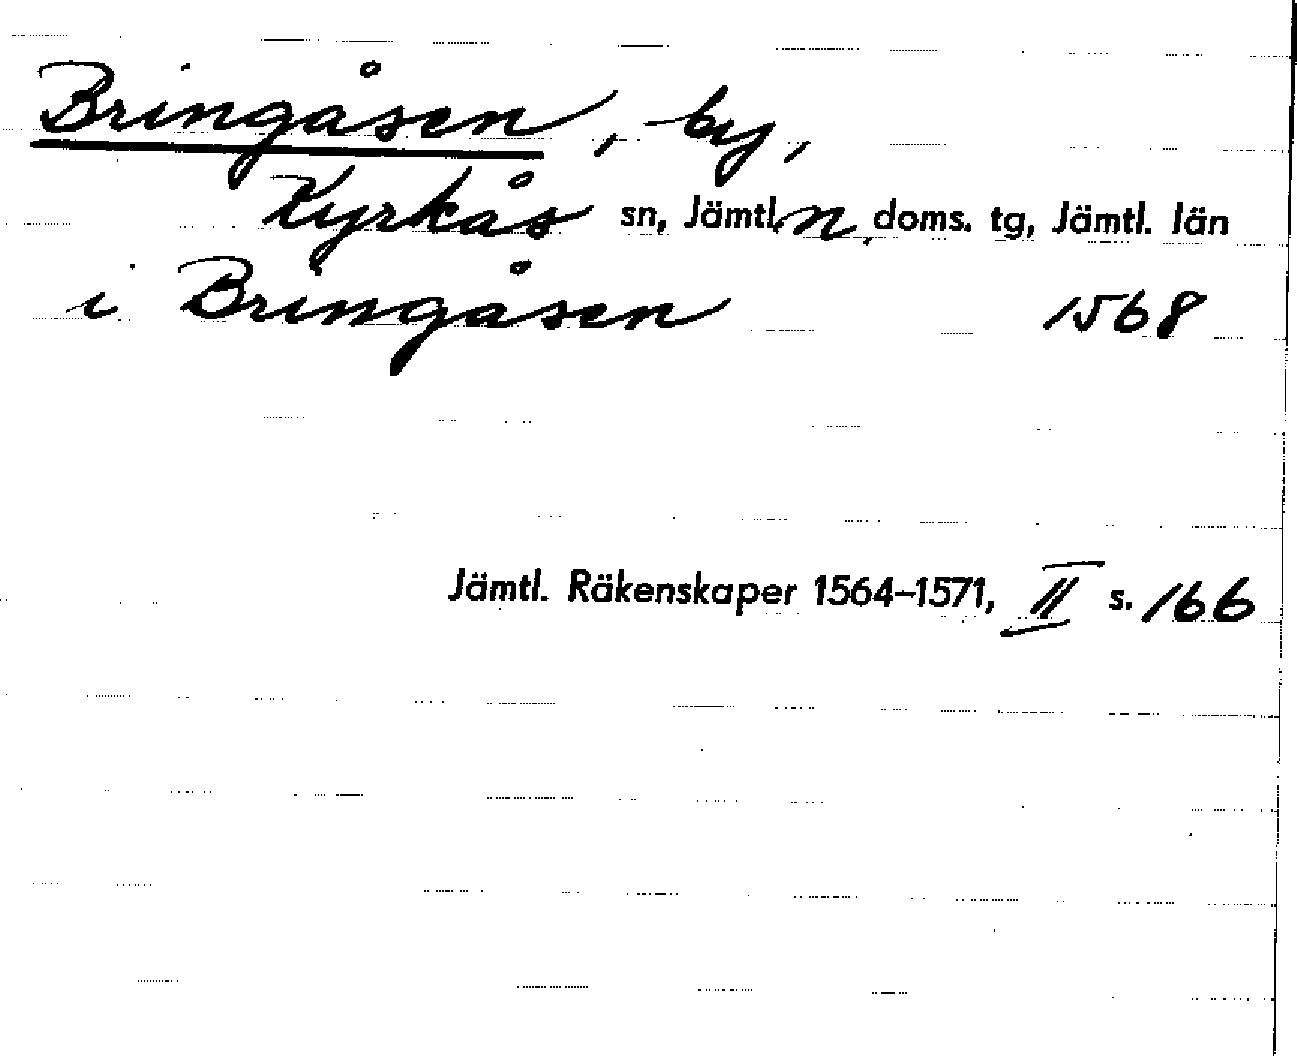 Bringåsen, by,
Kyrkås sn, Jämtl. n. doms. tg, Jämtl. län
i Bringåsen 1568
Jämtl. Räkenskaper 1564–1571, II s. 166